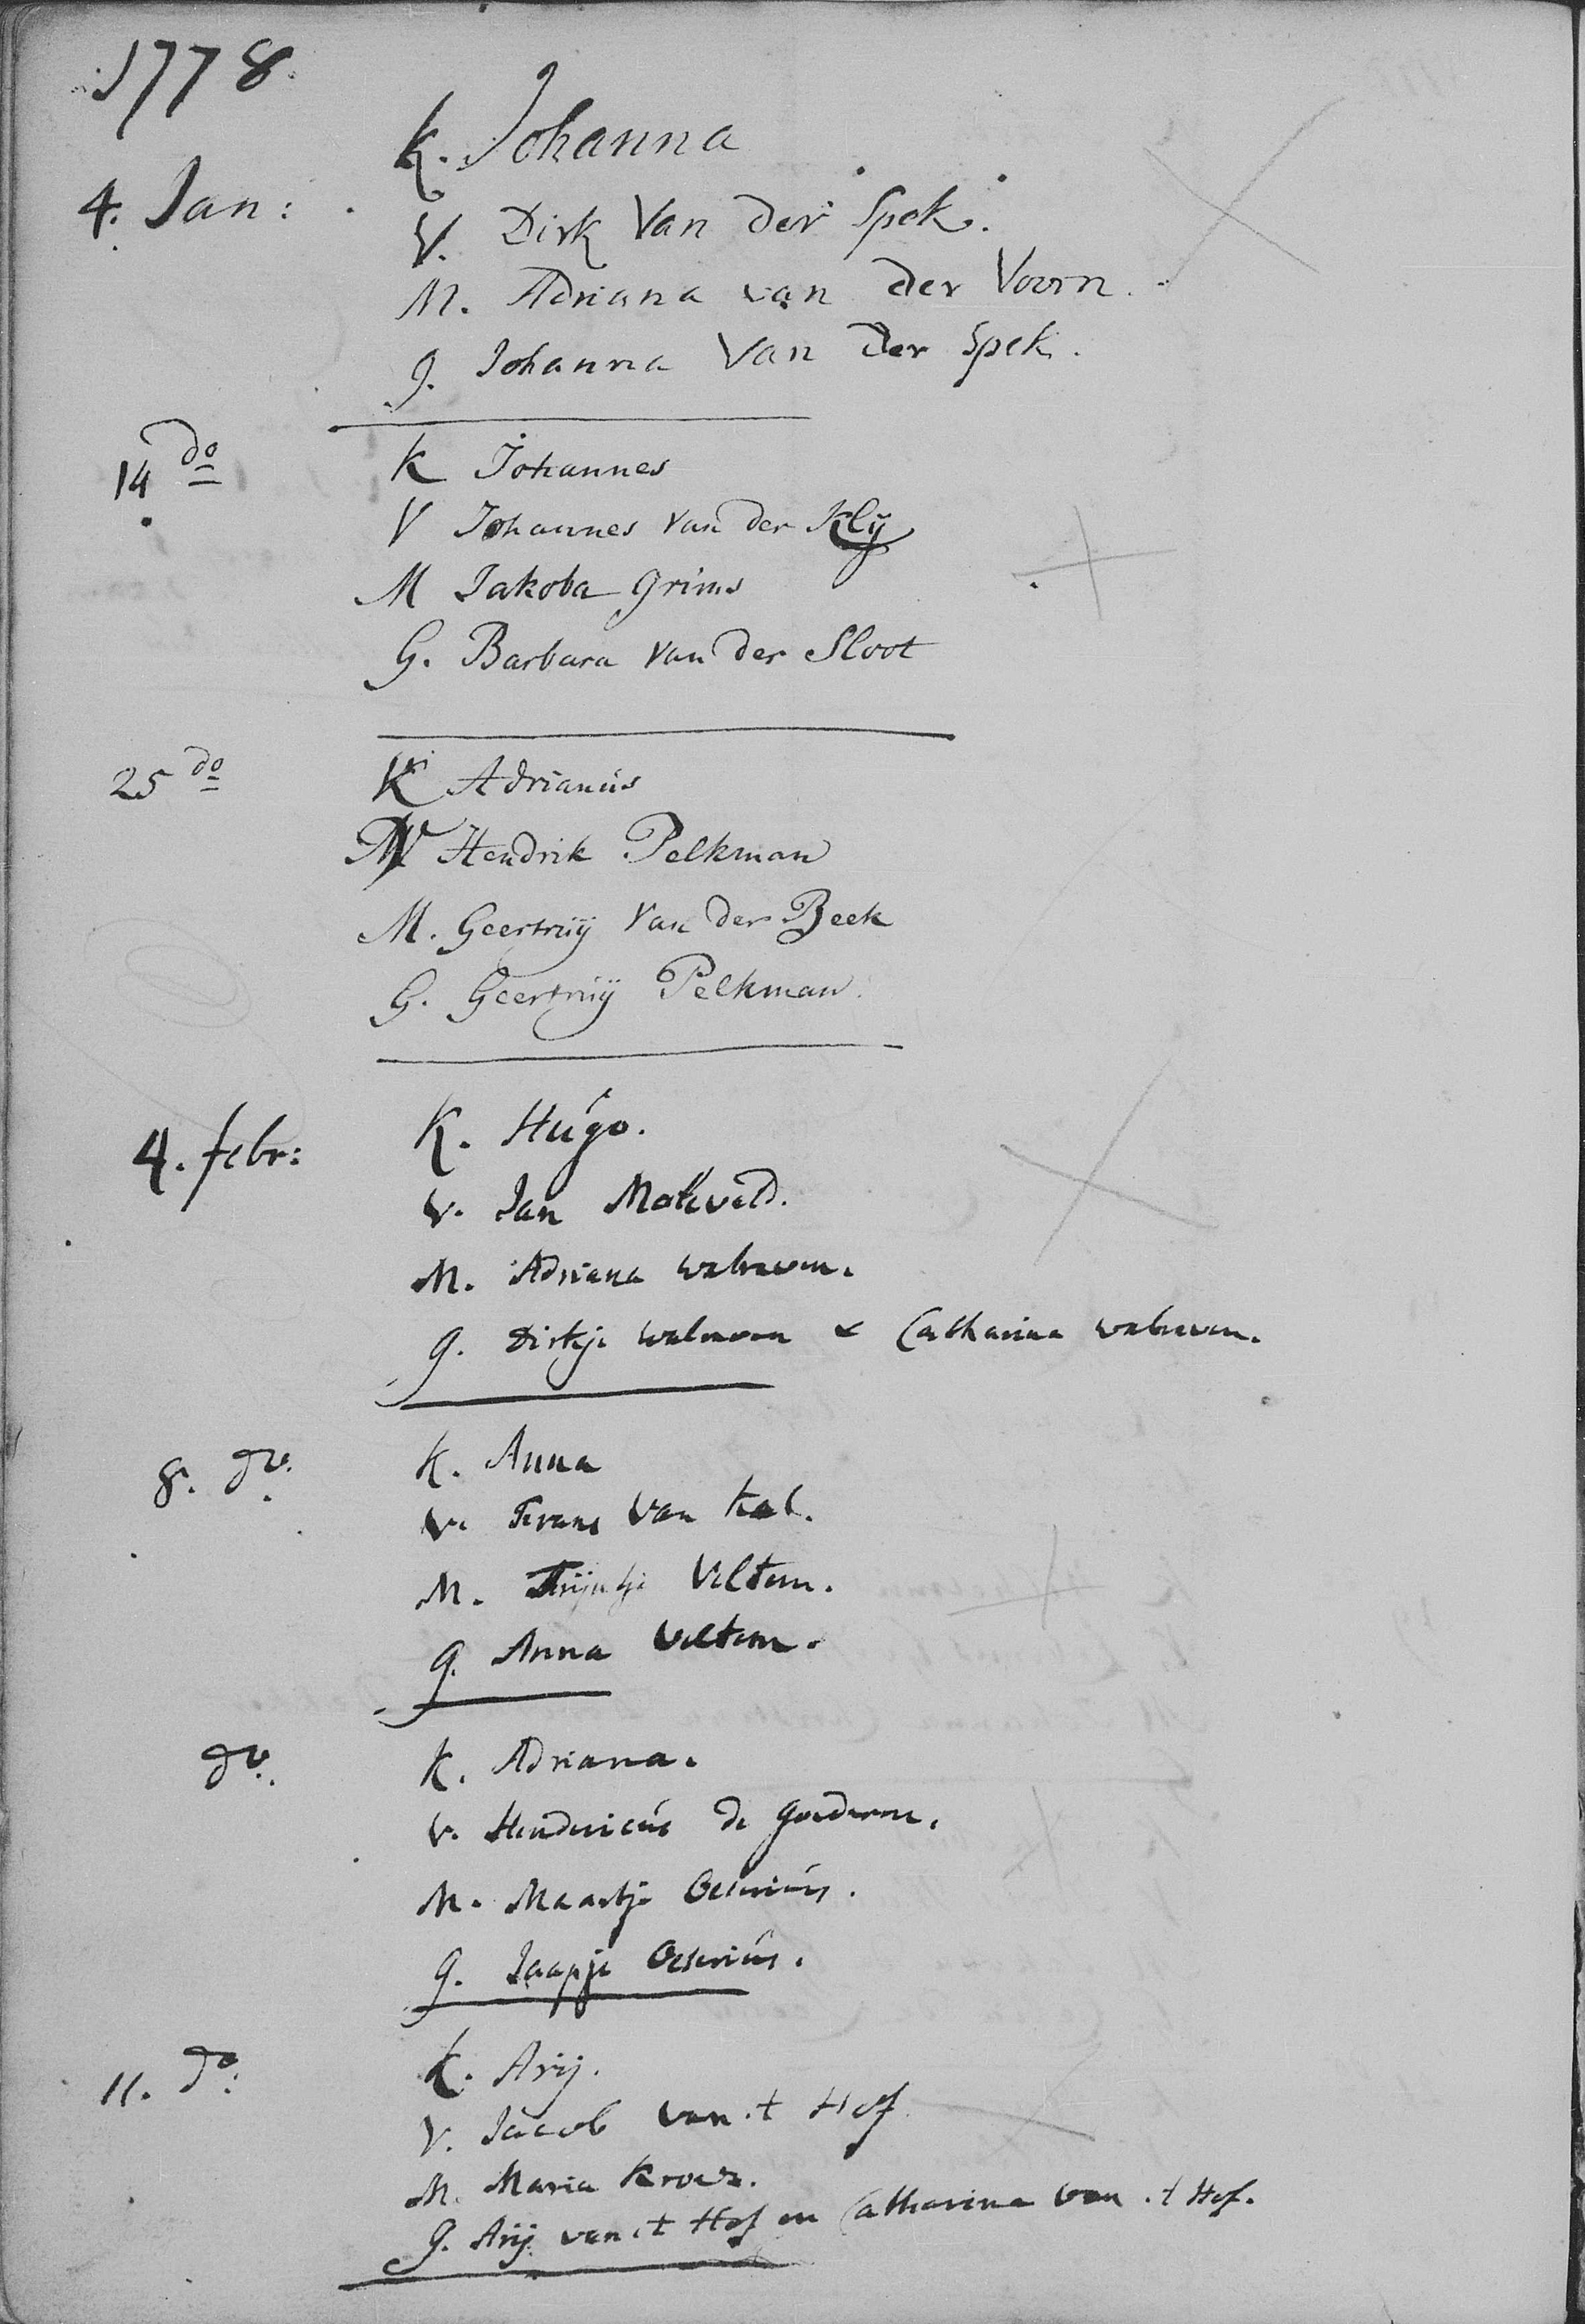 1778.
K. Johanna
4. Jan:
V. Dirk Van der Spek.
M. Adriana van der Voorn.
g. Johanna Van der Spek.
14 do
K Johannes
V Johannes van der Klij
M Jakoba Grims
G. Barbara van der Sloot
25 do
K Adrianus
V Hendrik Pelkman
M. Geertruij van der Beek
G. Geertruij Pelkman.
4. febr:
K. Hugo.
V. Jan Mokveld.
M. Adriana walraven.
g. Dirkje walraven & Catharina walraven.
8. do.
K. Anna
V. Frans van kal.
M. Trijntje Veltem.
g. Anna Veltem.
do.
K. Adriana.
V. Hendericus de
M. Maartje
g. Jaapje
11. do:
K. Arij.
V. Jacob van 't Hof
M. Maria
g. Arij van 't Hof en Catharina van 't Hof.